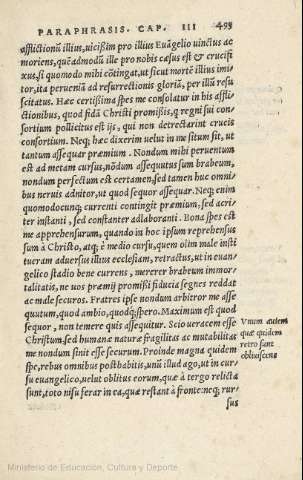 PARAPHRASIS. CAP. III 493
afflictionũ illius, uicißim pro illius Euãgelio uinctus ac
moriens, quẽadmodũ ille pro nobis cæsus est & crucifi
xus, si quomodo mihi cõtingat, ut sicut mortẽ illius imi
tor, ita perueniã ad resurrectionis gloriã, per illũ resu
scitatus. Hæc certißima spes me consolatur in his afflic
ctionibus, quod fidã Christi promißis, q regni sui con
sortium pollicitus est ijs, qui non detrectarint crucis
consortium. Neq; hæc dixerim uelut in me situm sit, ut
tantum assequar præmium. Nondum mihi peruentum
est ad metam cursus, nõdum assequutus sum brabeum,
nondum perfectum est certamen, sed tamen huc omni
bus neruis adnitor, ut quod sequor assequar. Neq; enim
quomodocunq; currenti contingit præmium, sed acri
ter instanti, sed constanter adlaboranti. Bona spes est
me apprehensurum, quando in hoc ipsum reprehensus
sum à Christo, atq; è medio cursu, quem olim male insti
tueram aduersus illius ecclesiam, retractus, ut in euan
gelico stadio bene currens, mererer brabeum immor
talitatis, ne uos præmij promißi fiducia segnes reddat
ac male securos. Fratres ipse nondum arbitror me asse
quutum, quod ambio, quodq; spero. Maximum est quod
sequor, non temere quis assequitur. Scio ueracem esse
Christum, sed humanæ naturæ fragilitas ac mutabilitas
me nondum sinit esse securum. Proinde magna quidem
spe, rebus omnibus posthabitis, unũ illud ago, ut in cur
su euangelico, uelut oblitus eorum, quæ à tergo relicta
sunt, toto nisu ferar in ea, quæ restant à fronte: neq; rur
sus
Vnum autem
quæ quidem
retro sunt
obliuiscens
Ministerio de Educación, Cultura y Deporte